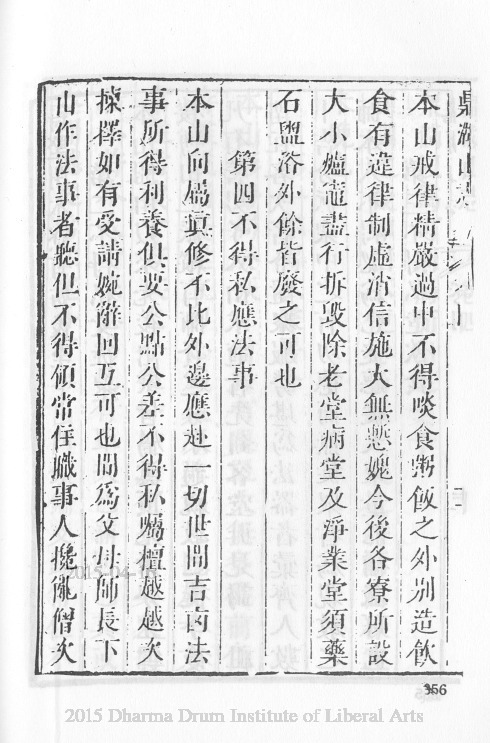 鼎湖山志
本山戒律精嚴過中不得啖食粥飯之外別造飲
食有違律制虛消信施大無慙媿今後各寮所設
大小爐竈盡行拆毀除老堂病堂及淨業堂須藥
石盥浴外餘皆廢之可也
第四不得私應法事
本山向屬眞修不比外邊應赴一切世間吉凶法
事所得利養俱要公點公差不得私囑檀越越次
揀擇如有受請婉辭回互可也間爲父母師長下
山作法事者聽但不得傾常住職事人攙亂僧次
2015-04-
356
2015 Dharma Drum Institute of Liberal Arts